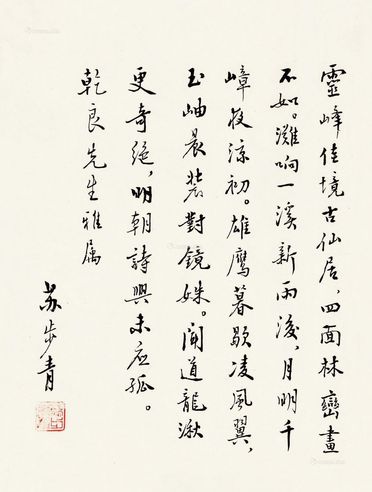 靈峰佳境古仙居，四面林巒畫
不如。灘响一溪新雨後，月明千
嶂夜涼初。雄鷹暮歇凌風翼，
玉岫晨裝對鏡姝。聞道龍湫
更奇絕，明朝詩興未應孤。
乾良先生雅属
苏步青